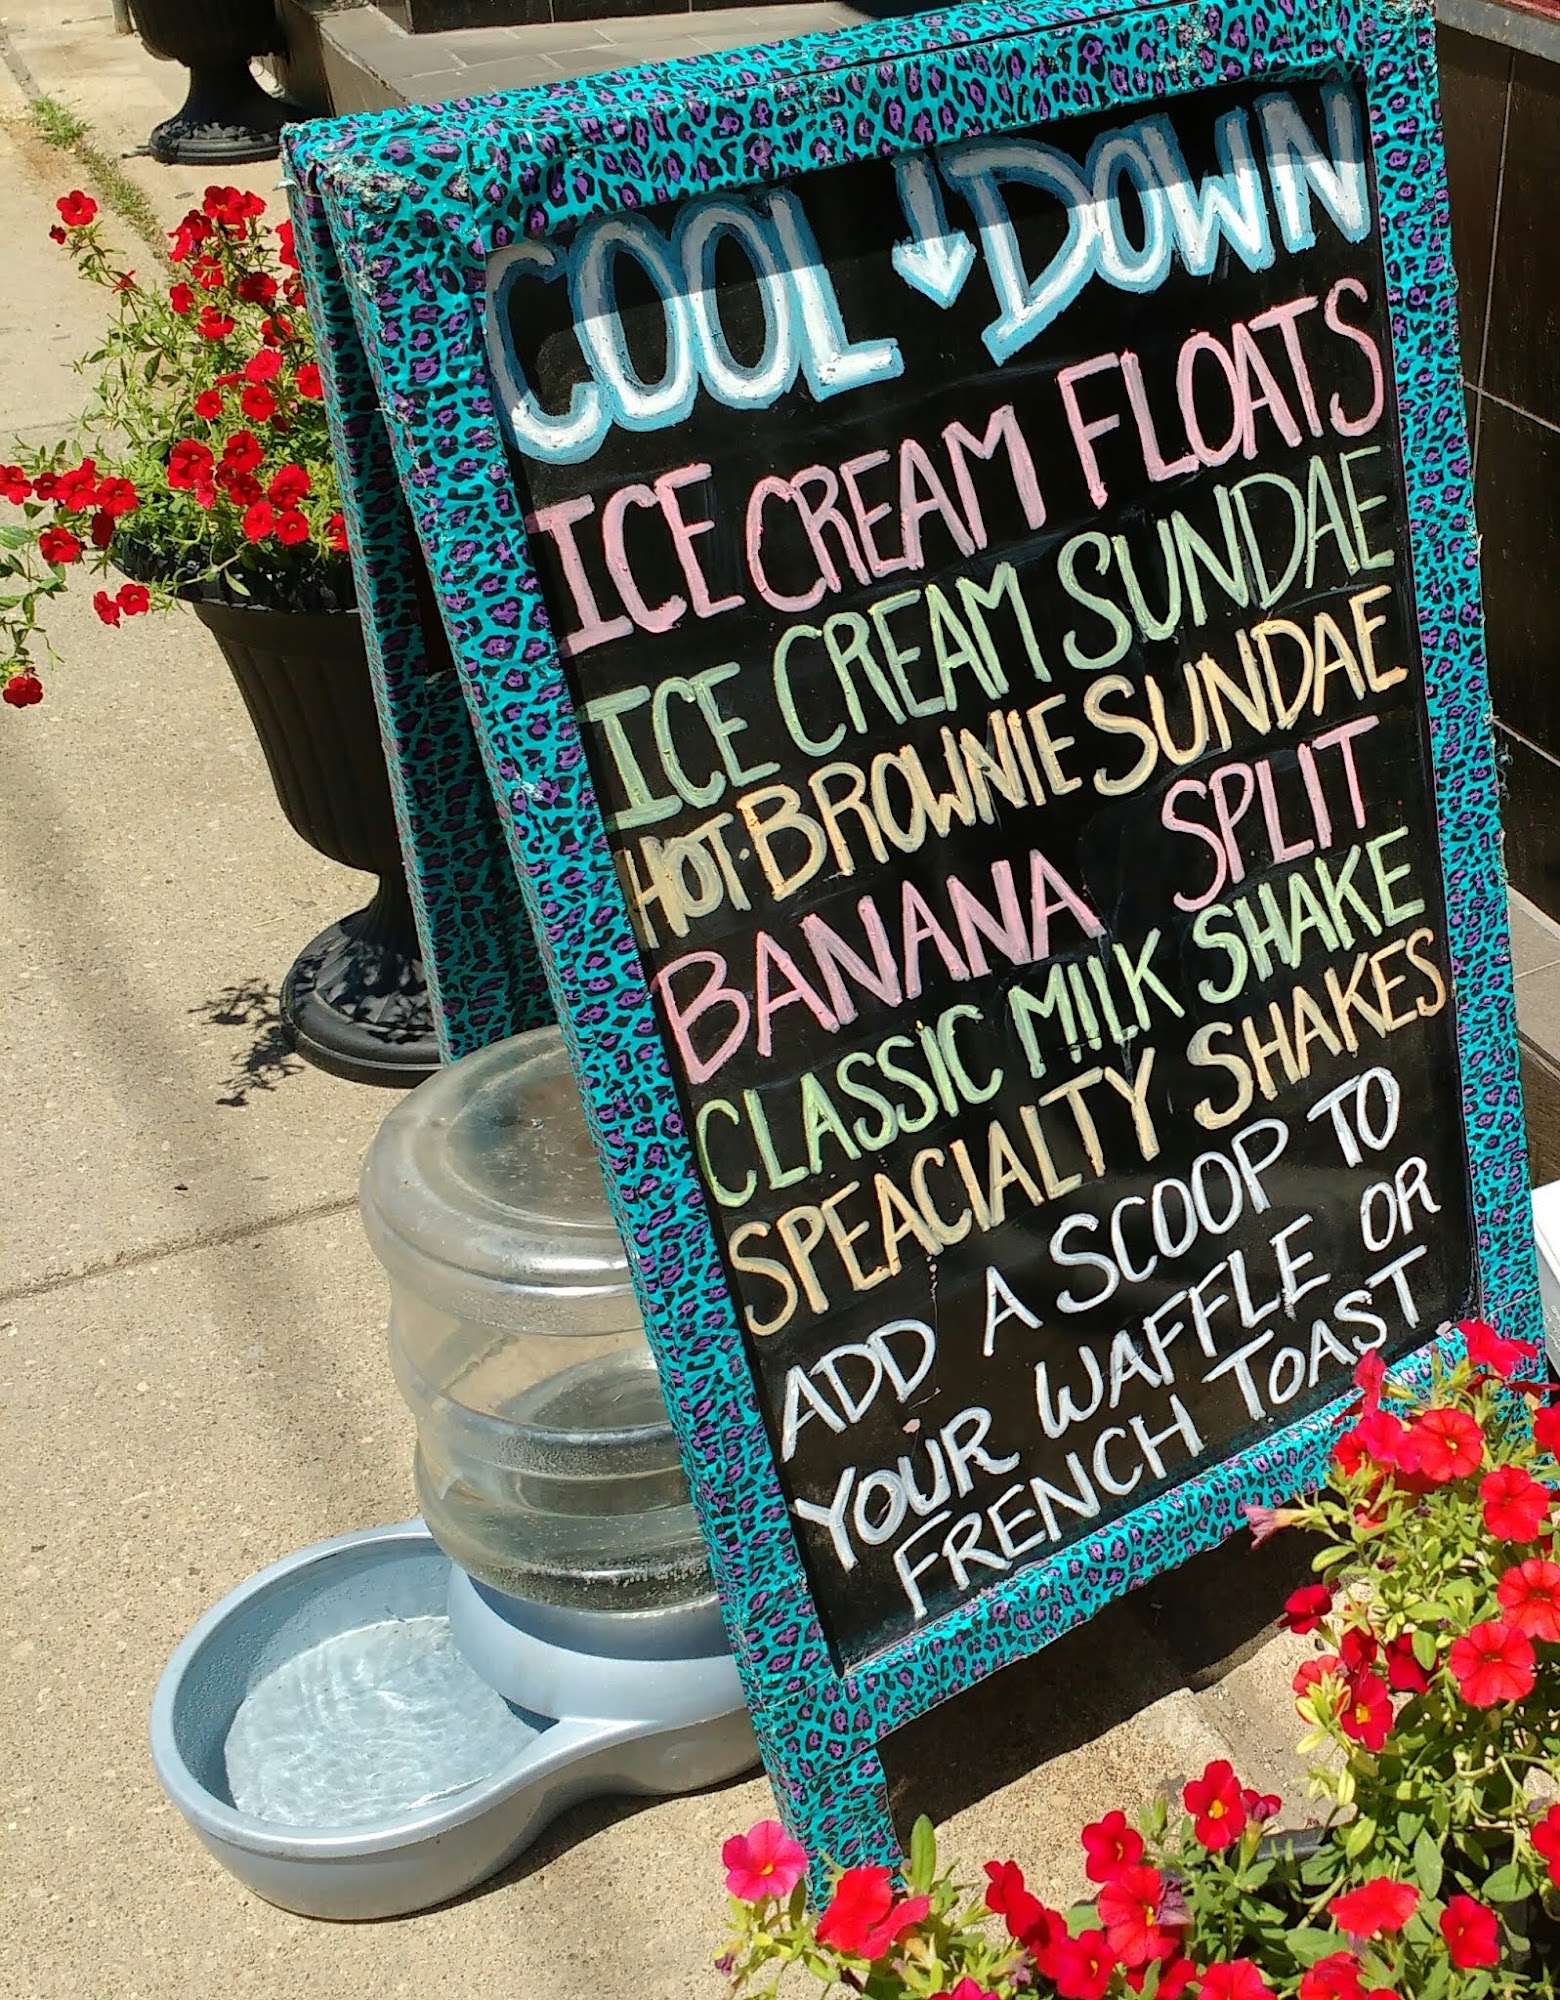 COOL ↓ DOWN
ICE CREAM FLOATS
ICE CREAM SUNDAE
HOT·BROWNIE SUNDAE
BANANA SPLIT
CLASSIC MILK SHAKE
SPEACIALTY SHAKES
ADD A SCOOP TO
YOUR WAFFLE OR
FRENCH TOAST